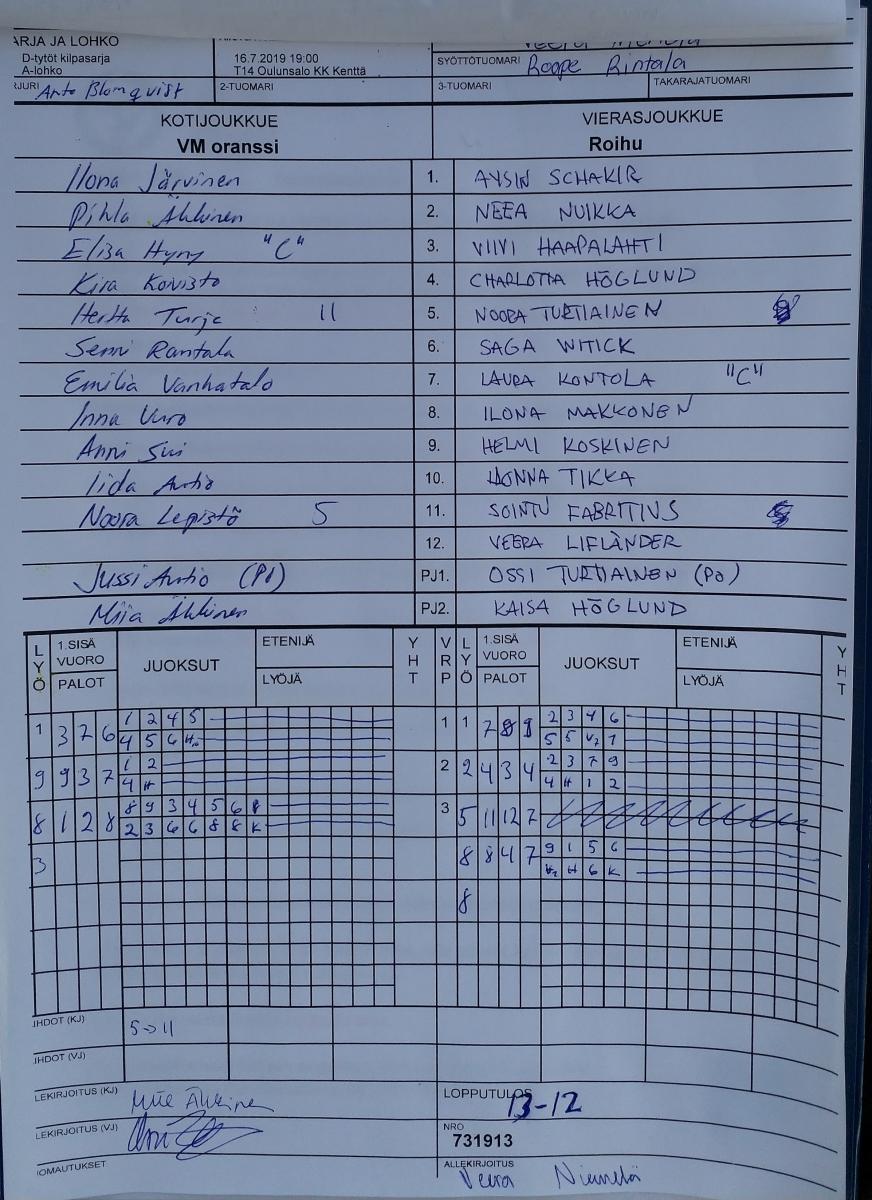 ARJA JA LOHKO
D-tytöt kilpasarja
A-lohko
16.7.2019 19:00
T14 Oulunsalo KK Kenttä
SYÖTTÖTUOMARI Roope Rintala
RJURI Arto Blomqvist
2-TUOMARI
3-TUOMARI
TAKARAJATUOMARI
KOTIJOUKKUE
VM oranssi
VIERASJOUKKUE
Roihu
Ilona Järvinen 1. AYSIN SCHAKIR
Pihla Ähkinen 2. NEEA NUIKKA
Elisa Hyny "C" 3. VIIVI HAAPALAHTI
Kira Koivisto 4. CHARLOTTA HÖGLUND
Hertta Turja 11 5. NOORA TURTIAINEN
Senni Rantala 6. SAGA WITICK
Emilia Vanhatalo 7. LAURA KONTOLA "C"
Inna Vuro 8. ILONA MAKKONEN
Anni Sui 9. HELMI KOSKINEN
Iida Autio 10. HONNA TIKKA
Noora Lepistö 5 11. SOINTU FABRITIUS
12. VEERA LIFLÄNDER
Jussi Autio (PJ) PJ1. OSSI TURTIAINEN (PJ)
Miia Ähkinen PJ2. KAISA HÖGLUND
LYÖ 1.SISÄ VUORO PALOT JUOKSUT ETENIJÄ LYÖJÄ YHT VRP LYÖ 1.SISÄ VUORO PALOT JUOKSUT ETENIJÄ LYÖJÄ YHT
1 3 7 6 1 2 4 5 1 1 7 8 9 2 3 4 6
4 5 6 5 5 V2 1
9 9 3 7 1 2 2 2 4 3 4 2 3 7 9
4 H 4 H 1 2
8 1 2 8 8 9 3 4 5 6 3 5 11 12 7
2 3 6 6 8 8 K
3 8 8 4 7 9 1 5 6
H 6 K
8
IHDOT (KJ) 5->11
IHDOT (VJ)
LEKIRJOITUS (KJ) Miia Ähkinen
LOPPUTULOS 13-12
LEKIRJOITUS (VJ)
NRO
731913
IOMAUTUKSET
ALLEKIRJOITUS
Veera Niemelä